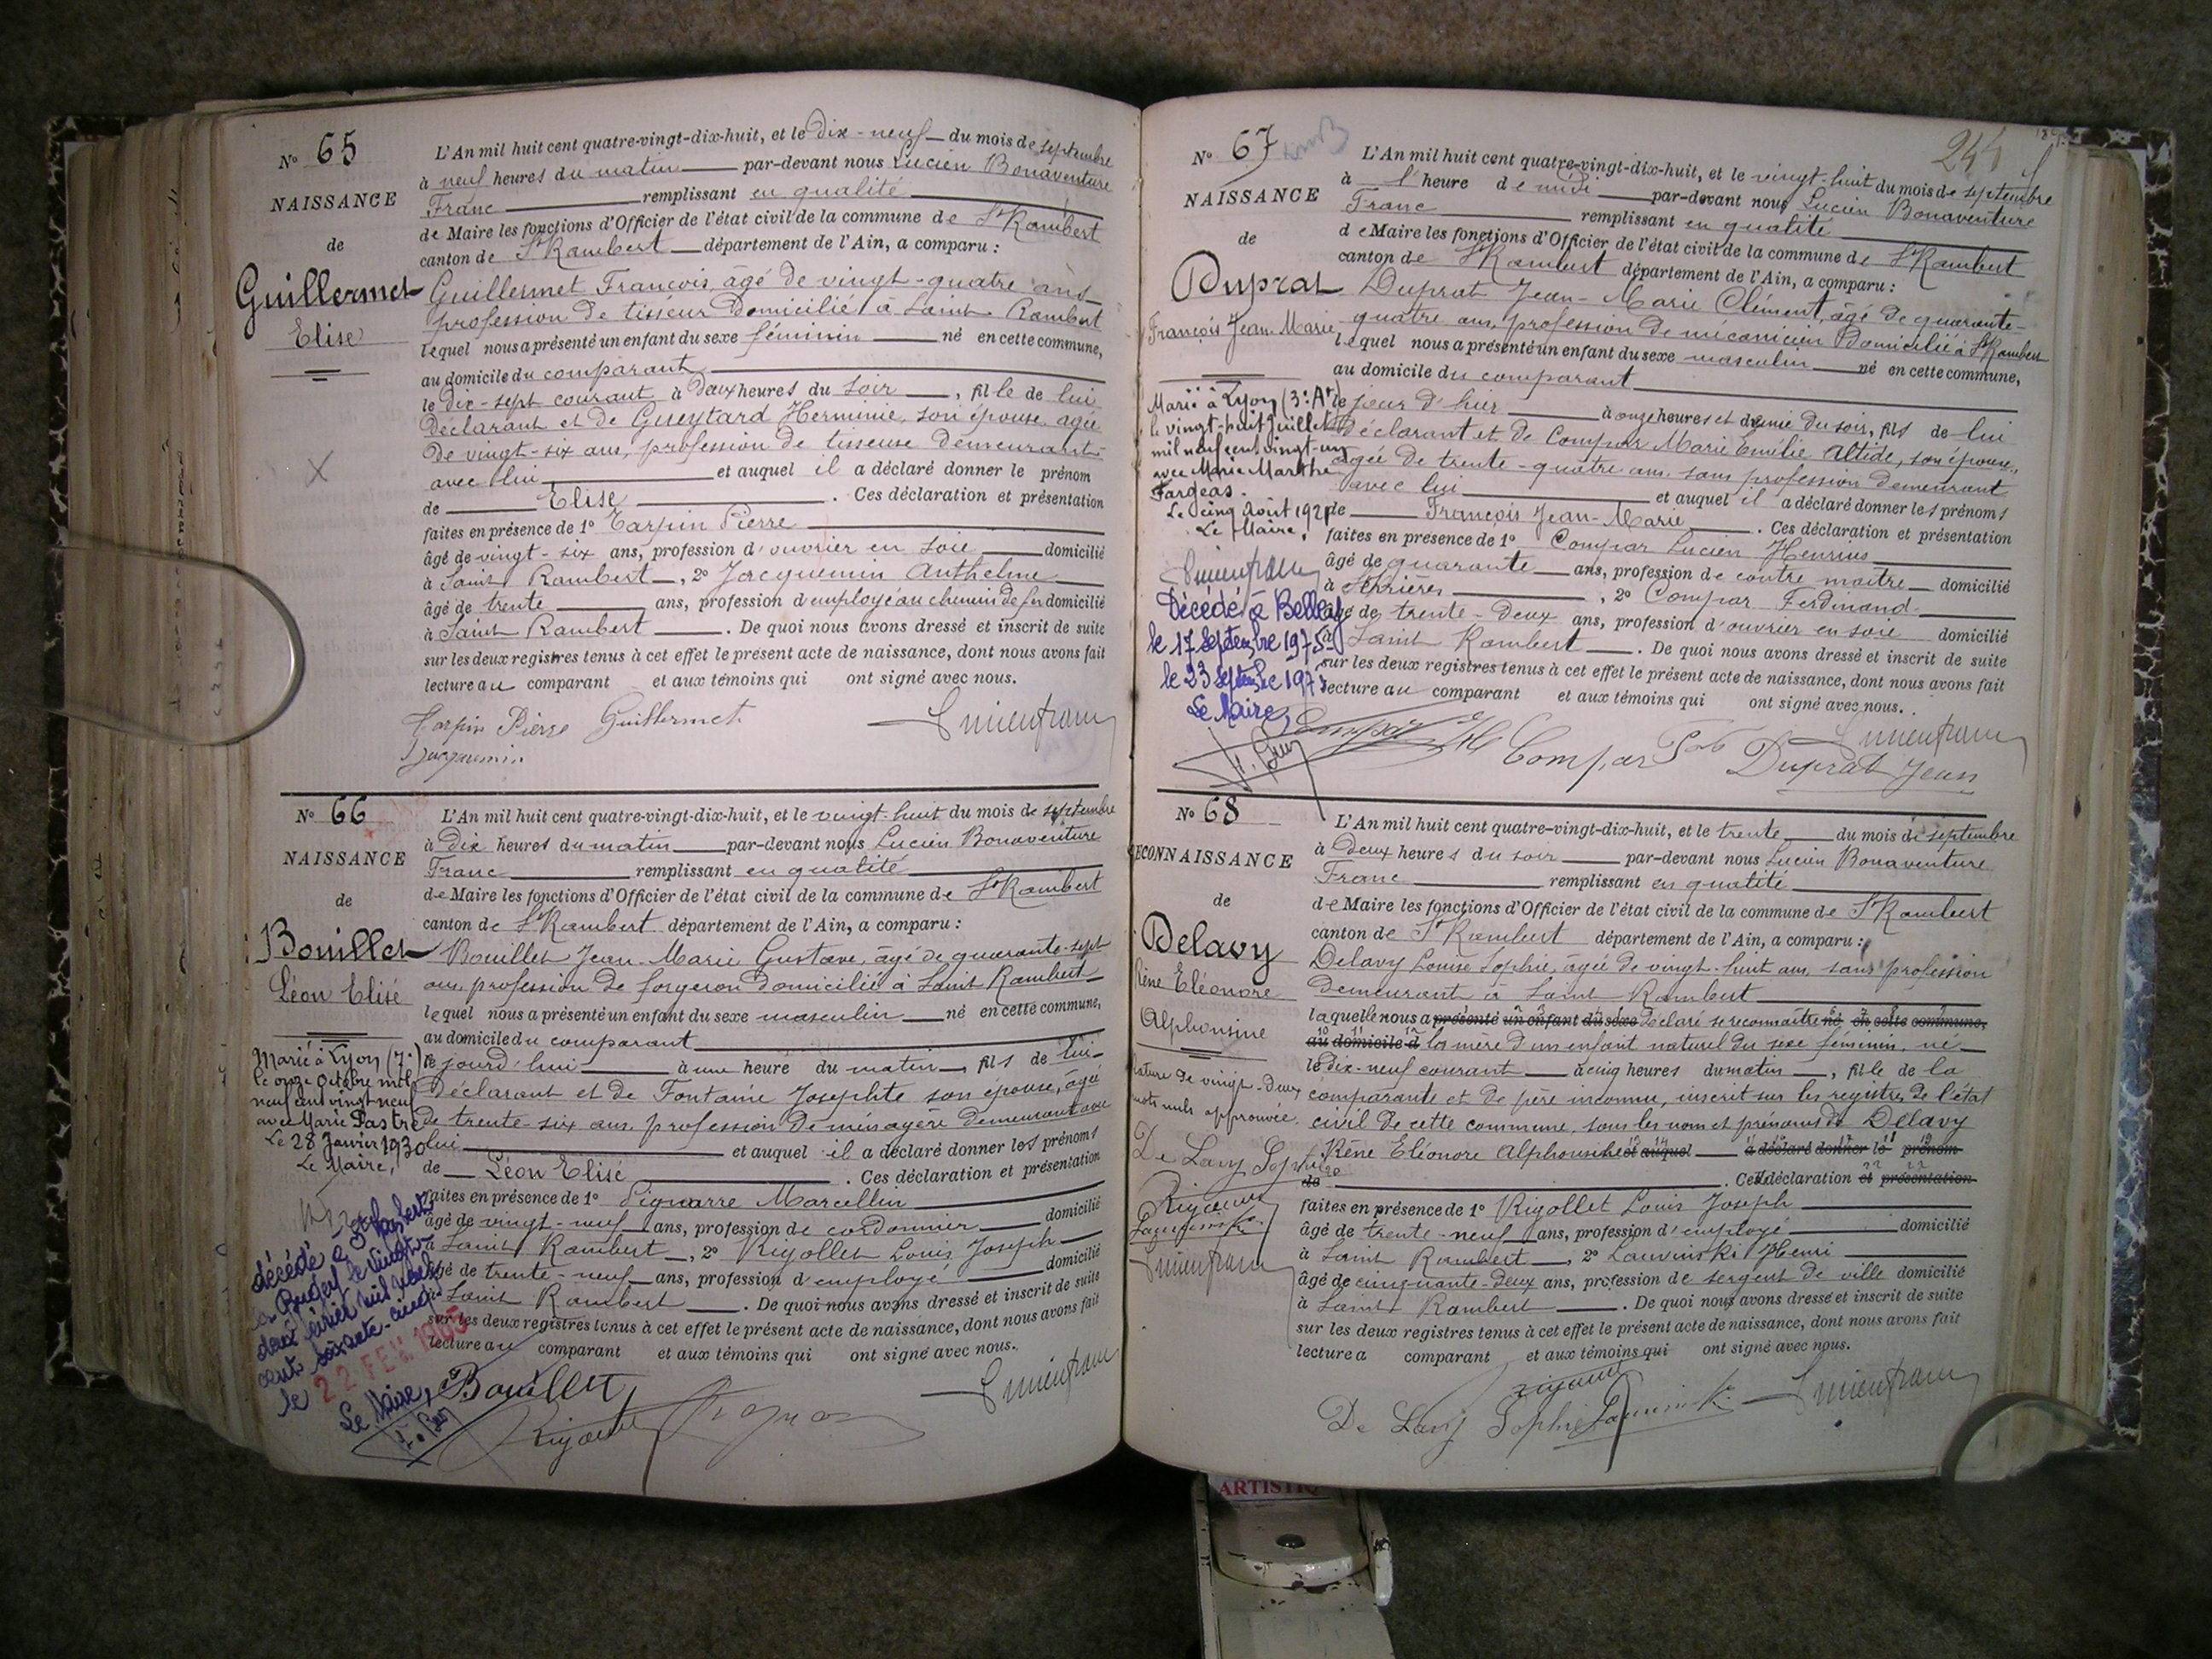 N° 65
NAISSANCE
de
Guillermet
Elise
L'An mil huit cent quatre-vingt-dix-huit, et le dix-neuf du mois de septembre
à neuf heures du matin par-devant nous Lucien Bonaventure
Franc remplissant en qualité
de Maire les fonctions d'Officier de l'état civil de la commune de St Rambert
canton de St Rambert département de l'Ain, a comparu :
Guillermet François, âgé de vingt-quatre ans
profession de tisseur domicilié à Saint Rambert
lequel nous a présenté un enfant du sexe féminin né en cette commune,
au domicile du comparant
le dix-sept courant à deux heures du soir, fille de lui
déclarant et de Gueytard Herminie, son épouse, agée
de vingt-six ans, profession de tisseuse demeurant
avec lui et auquel il a déclaré donner le prénom
de Elise. Ces déclaration et présentation
faites en présence de 1° Tarpin Pierre
âgé de vingt-six ans, profession d'ouvrier en soie domicilié
à Saint Rambert, 2° Jacquemin Anthelme
âgé de trente ans, profession d'employé au chemin de fer domicilié
à Saint Rambert. De quoi nous avons dressé et inscrit de suite
sur les deux registres tenus à cet effet le présent acte de naissance, dont nous avons fait
lecture au comparant et aux témoins qui ont signé avec nous.
Tarpin Pierre Guillermet
Jacquemin
N° 66
NAISSANCE
de
Bouillet
Léon Elisé
Marié à Lyon (7e)
le onze Octobre mil
neuf cent vingt neuf
avec Marie Pastre
Le 28 Janvier 1930
Le Maire,
décédé à St Rambert
en Bugey le vingt
deux février mil neuf
cent soixante-cinq
le 22 FEV 1965
Le Maire,
L'An mil huit cent quatre-vingt-dix-huit, et le vingt-huit du mois de septembre
à dix heures du matin par-devant nous Lucien Bonaventure
Franc remplissant en qualité
de Maire les fonctions d'Officier de l'état civil de la commune de St Rambert
canton de St Rambert département de l'Ain, a comparu :
Bouillet Jean-Marie Gustave, âgé de quarante-sept
ans, profession de forgeron domicilié à Saint Rambert
lequel nous a présenté un enfant du sexe masculin né en cette commune,
au domicile du comparant
ce jourd'hui à une heure du matin, fils de lui
déclarant et de Fontaine Josephte son épouse, âgée
de trente-six ans, profession de ménagère demeurant avec
lui et auquel il a déclaré donner les prénoms
de Léon Elisé. Ces déclaration et présentation
faites en présence de 1° Pignarre Marcellin
âgé de vingt-neuf ans, profession de cordonnier domicilié
à Saint Rambert, 2° Rigollet Louis Joseph
âgé de trente-neuf ans, profession d'employé domicilié
à Saint Rambert. De quoi nous avons dressé et inscrit de suite
sur les deux registres tenus à cet effet le présent acte de naissance, dont nous avons fait
lecture au comparant et aux témoins qui ont signé avec nous.
Bouillet
N° 67
NAISSANCE
de
Duprat
François Jean-Marie
Marié à Lyon (3e Art)
le vingt-huit Juillet
mil neuf cent vingt-un
avec Marie Marthe
Fargeas.
Le cinq Août 1921
Le Maire,
Décédé à Belley
le 17 Septembre 1975
le 23 Septembre 1975
Le Maire,
241
L'An mil huit cent quatre-vingt-dix-huit, et le vingt-huit du mois de septembre
à l'heure de midi par-devant nous Lucien Bonaventure
Franc remplissant en qualité
de Maire les fonctions d'Officier de l'état civil de la commune de St Rambert
canton de St Rambert département de l'Ain, a comparu :
Duprat Jean-Marie Clément, âgé de quarante-
quatre ans, profession de mécanicien domicilié à St Rambert
lequel nous a présenté un enfant du sexe masculin né en cette commune,
au domicile du comparant
le jour d'hier à onze heures et demie du soir, fils de lui
déclarant et de Compar Marie Emélie Altide, son épouse,
agée de trente-quatre ans, sans profession demeurant
avec lui et auquel il a déclaré donner les prénoms
de François Jean-Marie. Ces déclaration et présentation
faites en présence de 1° Compar Lucien Henrius
âgé de quarante ans, profession de contre maitre domicilié
à Serrières, 2° Compar Ferdinand
âgé de trente-deux ans, profession d'ouvrier en soie domicilié
à Saint Rambert. De quoi nous avons dressé et inscrit de suite
sur les deux registres tenus à cet effet le présent acte de naissance, dont nous avons fait
lecture au comparant et aux témoins qui ont signé avec nous.
Compar Duprat Jean
N° 68
RECONNAISSANCE
de
Delavy
Rène Eléonore
Alphonsine
Rature de vingt-deux
mots nuls approuvée.
De Lavy Sophie
L'An mil huit cent quatre-vingt-dix-huit, et le trente du mois de septembre
à deux heures du soir par-devant nous Lucien Bonaventure
Franc remplissant en qualité
de Maire les fonctions d'Officier de l'état civil de la commune de St Rambert
canton de St Rambert département de l'Ain, a comparu :
Delavy Louise Sophie, âgée de vingt-huit ans, sans profession
demeurant à Saint Rambert
laquelle nous a présenté un enfant du sexe déclaré se reconnaître né en cette commune,
au domicile d la mère d'un enfant naturel du sexe féminin, né
le dix-neuf courant à cinq heures du matin, fille de la
comparante et de père inconnu, inscrit sur les registres de l'état
civil de cette commune, sous les nom et prénoms de Delavy
Rène Eléonore Alphonsine et auquel a déclaré donner le prénom
de. Cette déclaration et présentation
faites en présence de 1° Rigollet Louis Joseph
âgé de trente-neuf ans, profession d'employé domicilié
à Saint Rambert, 2° Lauvinski Henri
âgé de cinquante-deux ans, profession de sergent de ville domicilié
à Saint Rambert. De quoi nous avons dressé et inscrit de suite
sur les deux registres tenus à cet effet le présent acte de naissance, dont nous avons fait
lecture a comparant et aux témoins qui ont signé avec nous.
De Lavy Sophie
ARTISTI